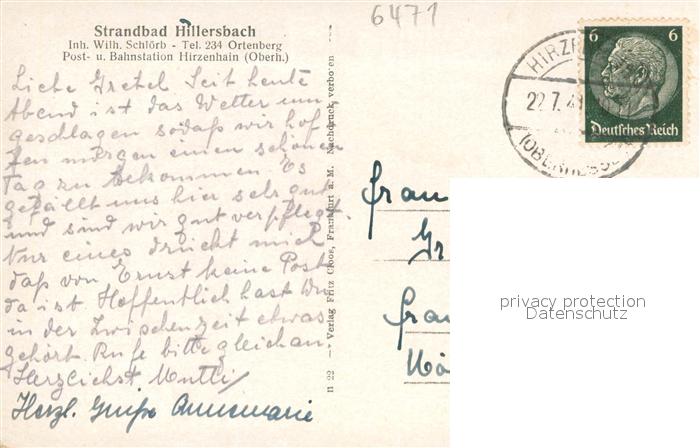 Strandbad Hillersbach
Inh. Wilh. Schlörb - Tel. 234 Ortenberg
Post- u. Bahnstation Hirzenhain (Oberh.)
6471
Liebe Gretel Seit heute
Abend ist das Wetter um
geschlagen sodaß wir hof
fen morgen einen schönen
Tag zu bekommen. Es
gefällt uns hier sehr gut
und sind wir gut verpflegt.
Nur eines drückt mich
daß von Ernst keine Post
da ist Hoffentlich hast Du
in der Zwischenzeit etwas
gehört. Rufe bitte gleich an.
Herzlichst Mutti
Herzl. Grüße Annemarie
11 22 — Verlag Fritz Cloos, Frankfurt a. M. Nachdruck verboten —
6 6
Deutsches Reich
HIRZ
22.7.4
(OBERHESS
Frau
Gr
Fra
privacy protection
Datenschutz